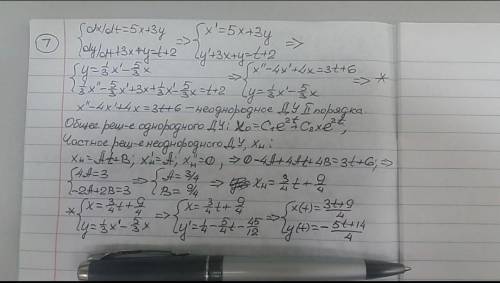 7 {dx/dt=5x+3y {dy/dt+3x+y=t+2 => {x'=5x+3y {y'+3x+y=t+2 =>
{y=1/3x'-5/3x {1/3x''-5/3x'+3x+1/3x'-5/3x=t+2 => {x''-4x'+4x=3t+6 {y=1/3x'-5/3x => *
x''-4x'+4x=3t+6 - неоднородное ДУ II порядка.
Общее реш-е однородного ДУ: x₀=C₁e^2t+C₂xe^2t,
Частное реш-е неоднородного ДУ, xн:
xн=At+B; x'н=A; x''н=0, => 0-4A+4At+4B=3t+6, =>
{4A=3 {-2A+2B=3 => {A=3/4 {B=9/4 => xн=3/4t+9/4
* {x=3/4t+9/4 {y=1/3x'-5/3x => {x=3/4t+9/4 {y'=1/4-5/4t-45/12 => {x(t)=3t+9/4 {y(t)=-5t+14/4